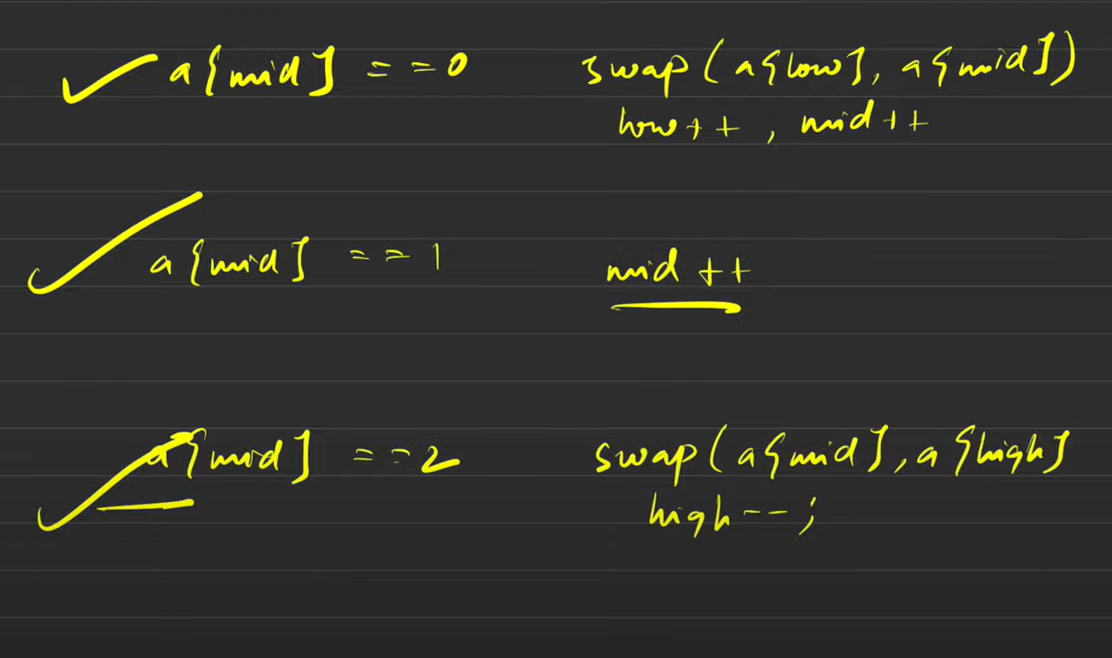 a[mid] == 0 swap(a[low], a[mid])
low++, mid++
a[mid] == 1 mid++
a[mid] == 2 swap(a[mid], a[high]
high--;